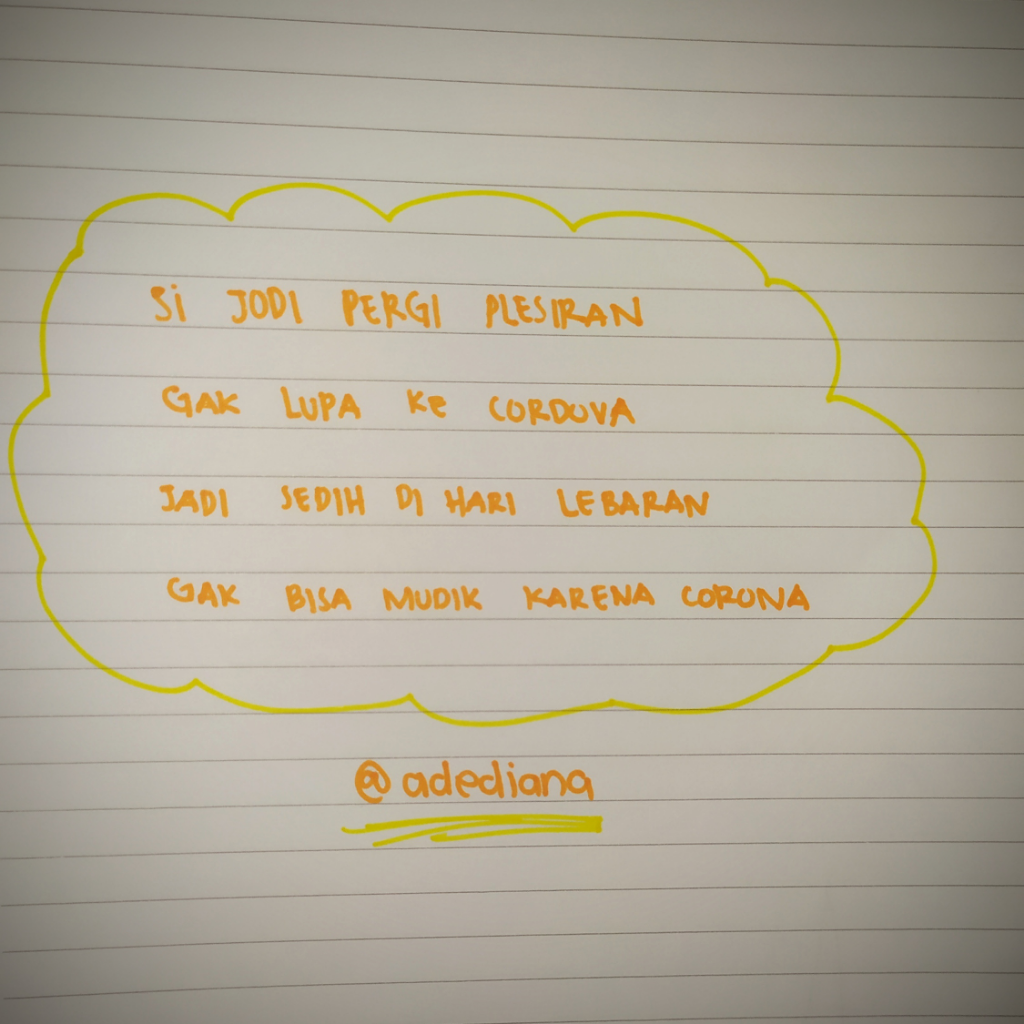 Si JODI PERGI PLESIRAN
GAK LUPA KE CORDOVA
JADI SEDIH DI HARI LEBARAN
GAK BISA MUDIK KARENA CORONA
@adediana